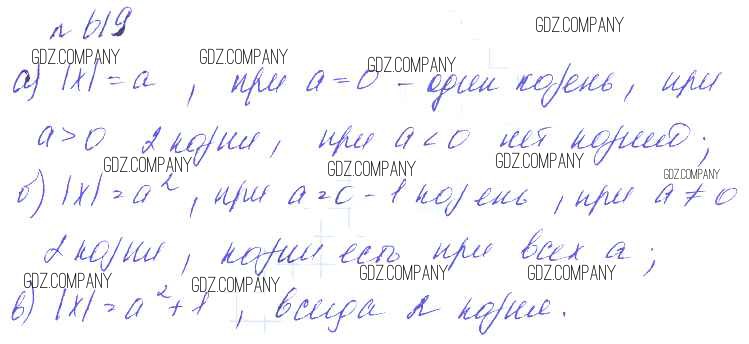 № 619
GDZ.COMPANY
GDZ.COMPANY GDZ.COMPANY GDZ.COMPANY
а) |x| = a, при a = 0 - один корень, при
a > 0 2 корня, при a < 0 нет корней;
GDZ.COMPANY GDZ.COMPANY GDZ.COMPANY GDZ.COMPANY
б) |x| = a², при a = 0 - 1 корень, при a ≠ 0
2 корня, корни есть при всех a;
GDZ.COMPANY GDZ.COMPANY GDZ.COMPANY GDZ.COMPANY
в) |x| = a² + 1, всегда 2 корня.